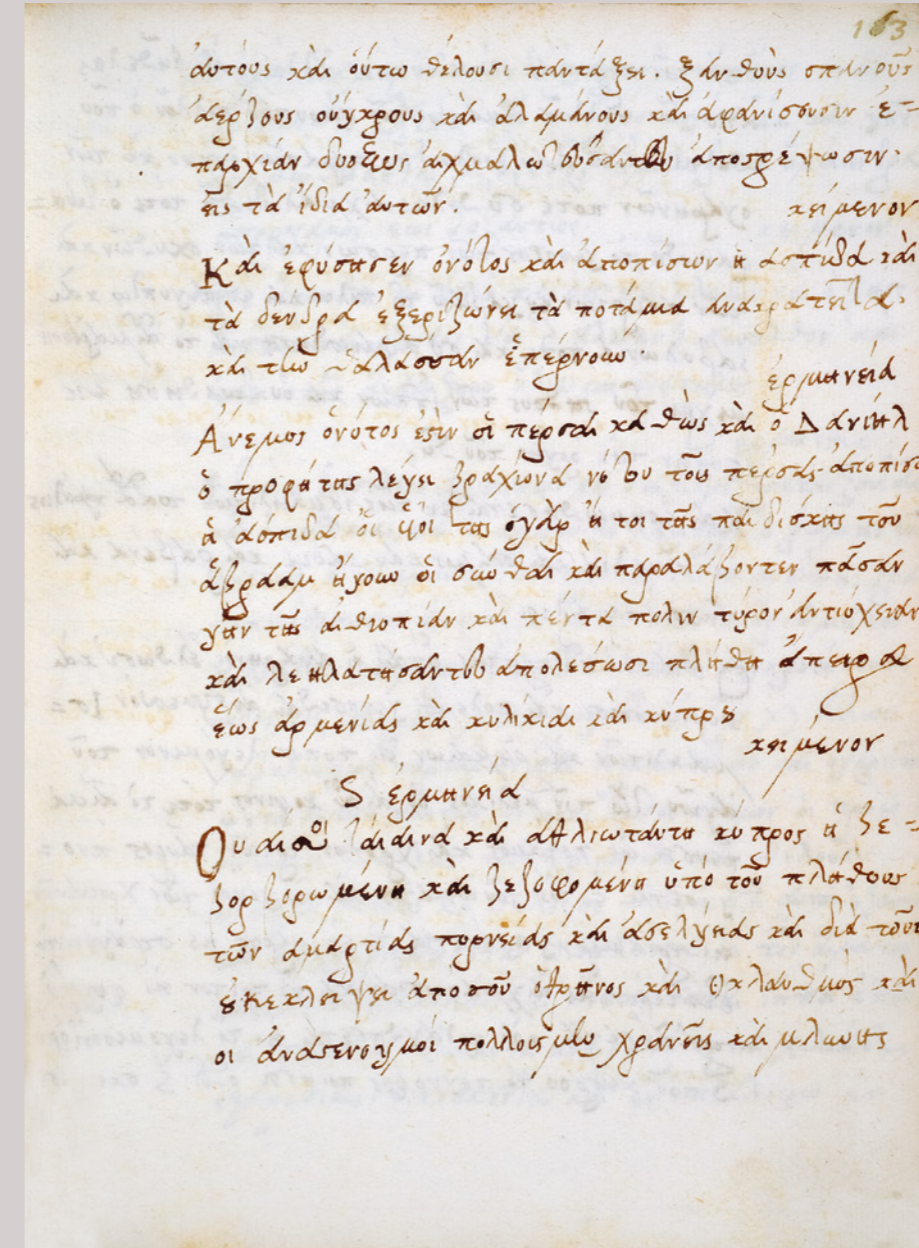 163
ἀυτόυς κὰι όύτω θέλουσι παντάξει. ξανθὸυς σπανοῦς
ἀερίους ὀύγκρους κὰι ἀλαμάνους κὰι ἀφανίσσυσιν ἐ-
παρχίαν δυσεως ἀιχμαλωτϊσύσαντες ἀποστρέψωσιν.
εἰς τὰ ἴδια ἀυτῶν.
κείμενον
Κὰι ἐφυσησεν ὀνότος κὰι ἀποπίσων ἡ ἀσπίδα κὰι
τὰ δενδρα ἐξεριζώνει τὰ ποτάμια ανακρατεῖ
κὰι τὴν θάλασσαν ἐπέρνουν
ἑρμηνεία
Ἄνεμος ὀνότος ἐστὶν οἱ περσαι καθὼς κὰι ὁ Δανιὴλ
ὁ προφήτης λέγει βραχίονα νότου τοὺς πέρσας ἀποπίσω
ἡ ἀσπιδα οἱ υἱοὶ της ἀγὰρ ἤ τοι τῆς παιδίσκης τοῦ
ἀβρααμ ἤγουν οἱ κὰι παραλάβοντεν πᾶσαν
γῆν τῆς ἀιθιοπίαν κὰι πέντα πολιν τύρον ἀντιόχειαν
κὰι λεηλατησαντες ἀπολεσωσι πλήθη ἄπειρα
ἑώς ἀρμενίας κὰι κυλικίαι κὰι κύπρου
κείμενον
ἑρμηνεία
Ουαι σοὶ τάλαινα κὰι ἀθλιωτάτη κύπρος ἡ βε-
βορβορωμένη κὰι ζεζοφομένη ὑπὸ τοῦ πλήθους
τῶν ἁμαρτίας πορνείας κὰι ἀσελγείας κὰι διὰ τοῦτο
ἐκλείψει ἀπο σοῦ ὁ θρῆνος κὰι ὁ κλαυθμὸς κὰι
οι ἀναστεναγμοὶ πολλοις